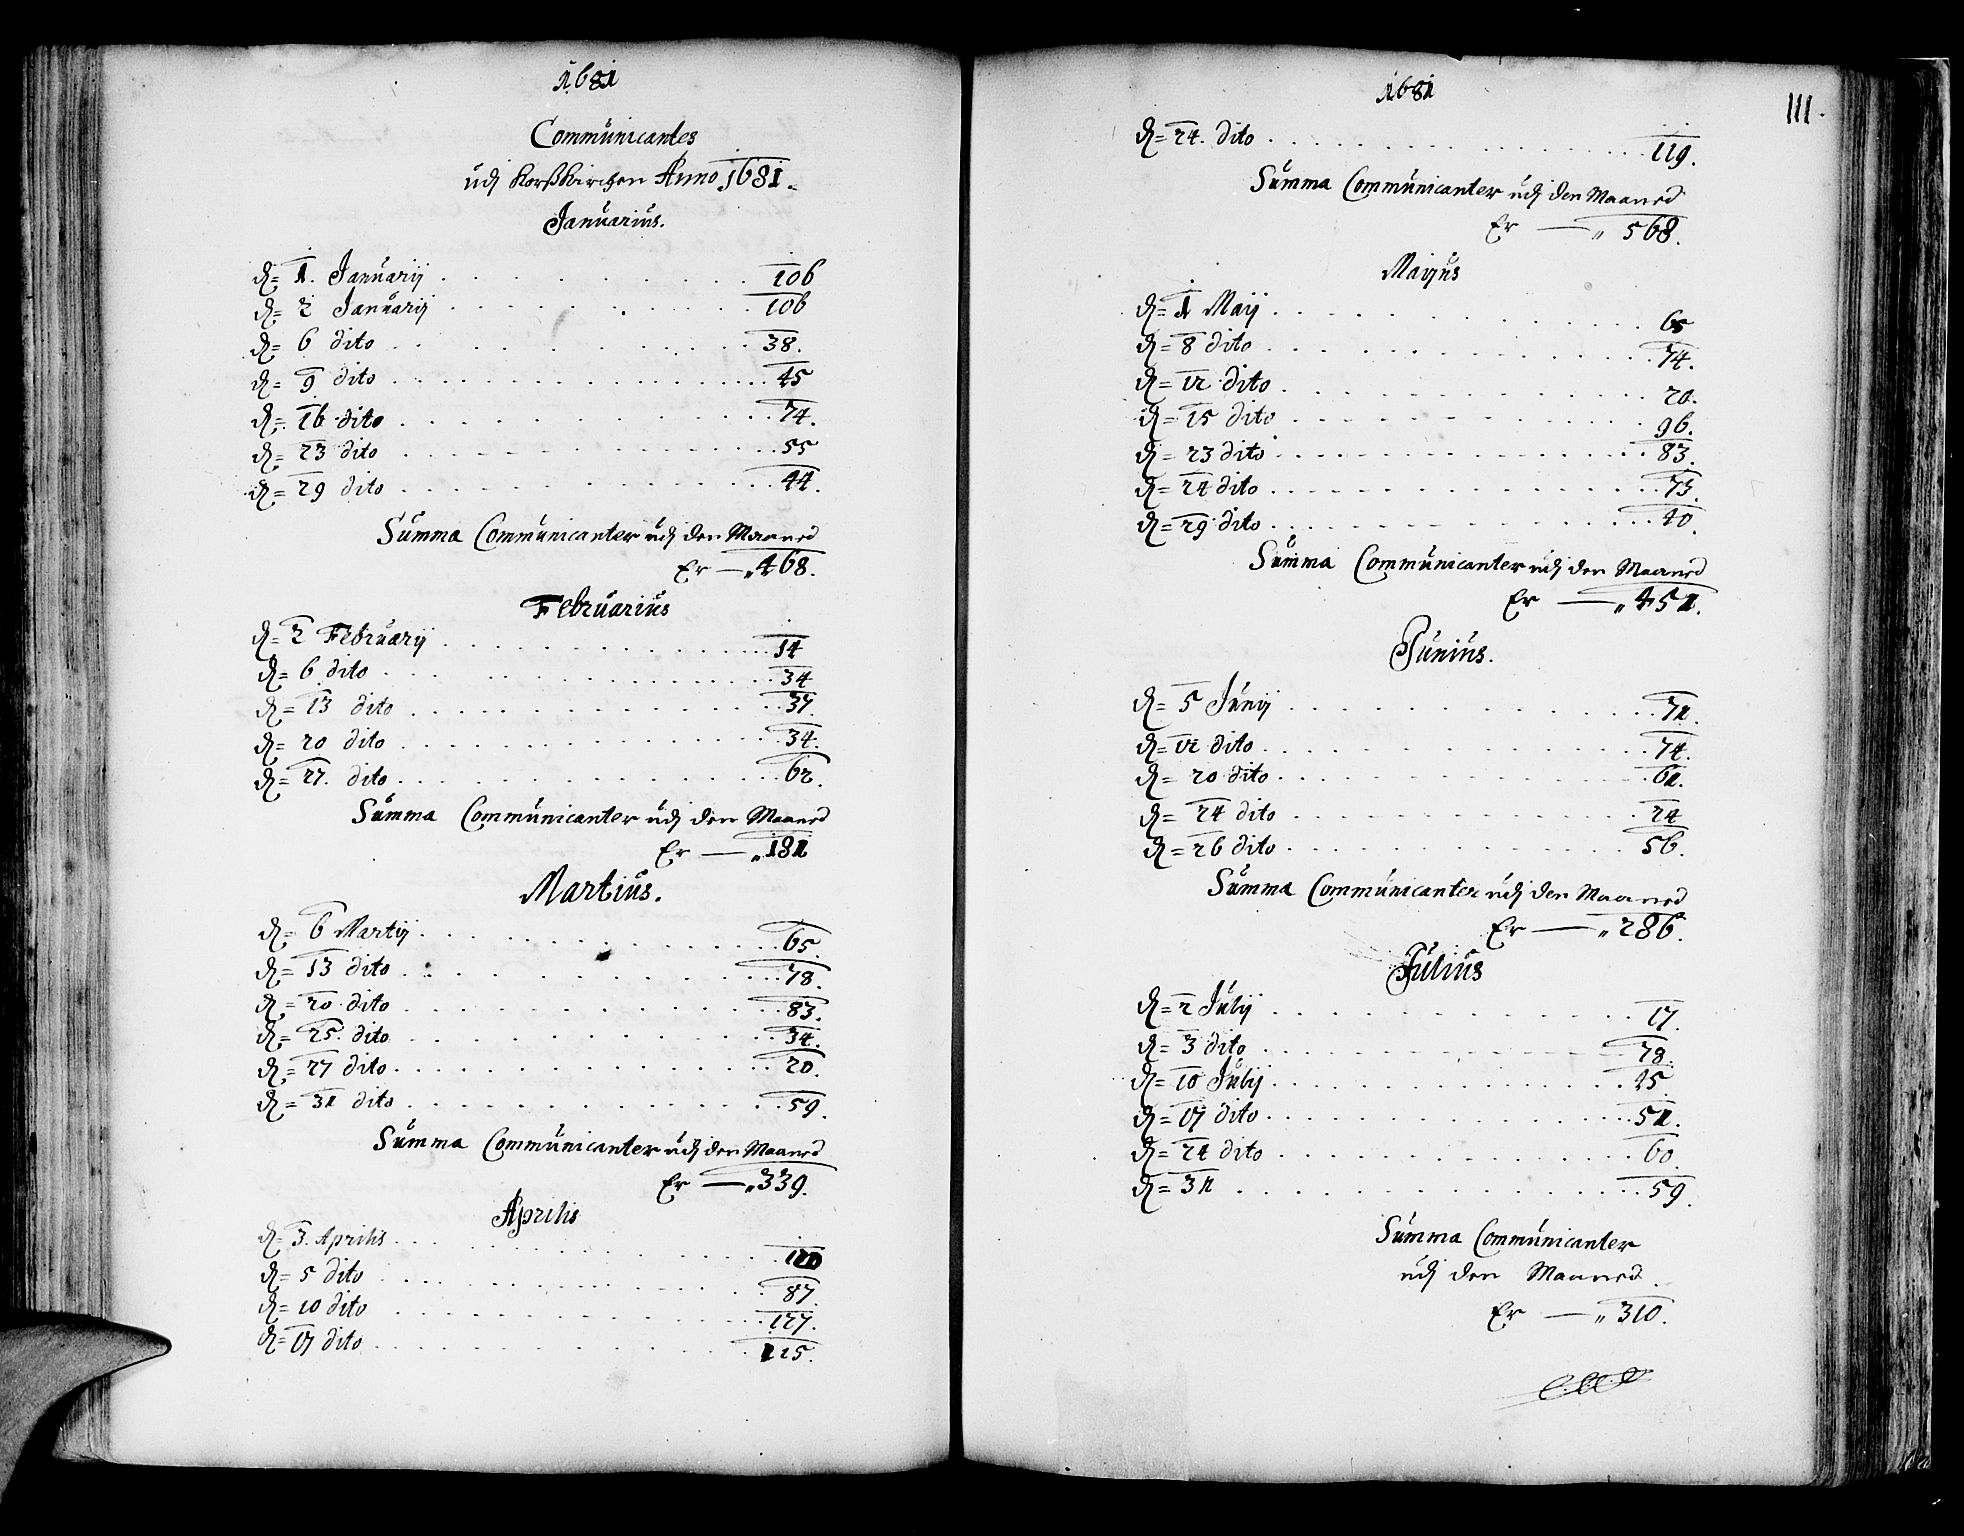 1681
Communicantes
udj Korßkirchen Anno 1681.
Januarius.
d= 1. Januarij . . . 106
d= 2 Januarij . . . 106
d= 6 dito . . . 38.
d= 9 dito . . . 45
d= 16 dito . . . 74.
d= 23 dito . . . 55
d= 29 dito . . . 44.
Summa Communicanter udj den Maaned
Er — „ 468.
Februarius
d= 2 Februarij . . . 14
d= 6 dito . . . 34
d= 13 dito . . . 37.
d= 20 dito . . . 34.
d= 27. dito . . . 62.
Summa Communicanter udj den Maaned
Er — „ 181
Martius.
d= 6 Martij . . . 65.
d= 13 dito . . . 78.
d= 20 dito . . . 83.
d= 25. dito . . . 34.
d= 27 dito . . . 20.
d= 31 dito . . . 59.
Summa Communicanter udj den Maaned
Er — „ 339.
Aprilis
d= 3. Aprilis . . . 120
d= 5 dito . . . 87.
d= 10 dito . . . 127.
d= 17 dito . . . 115.
1681
111.
d= 24. dito . . . 119.
Summa Communicanter udj den Maaned
Er — „ 568.
Maijus
d= 1 Maij . . . 65
d= 8 dito . . . 74.
d= 12 dito . . . 20.
d= 15 dito . . . 96.
d= 23 dito . . . 83.
d= 24 dito . . . 73.
d= 29 dito . . . 40.
Summa Communicanter udj den Maaned
Er — „ 451.
Junius.
d= 5 Junij . . . 71.
d= 12 dito . . . 74.
d= 20 dito . . . 61.
d= 24 dito . . . 24
d= 26 dito . . . 56.
Summa Communicanter udj den Maaned
Er — „ 286.
Julius
d= 2 Julij . . . 17.
d= 3 dito . . . 78.
d= 10 Julij . . . 45
d= 17 dito . . . 51.
d= 24 dito . . . 60.
d= 31 . . . 59.
Summa Communicanter
udj den Maaned.
Er — „ 310.